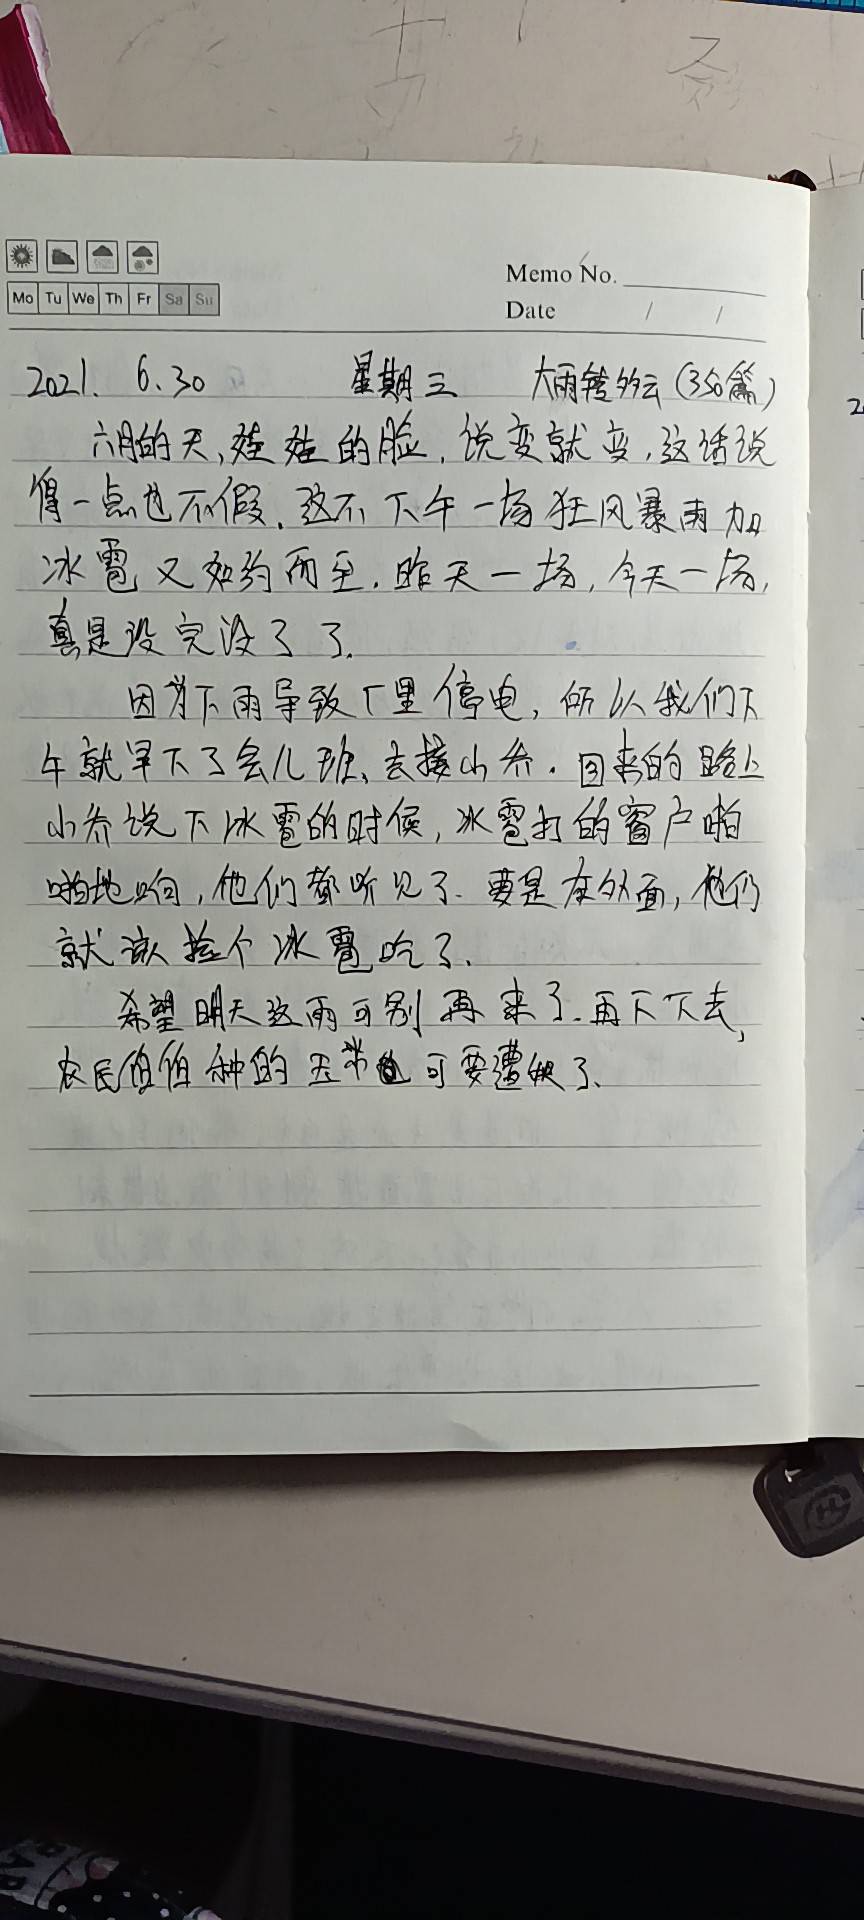 Memo No.
Mo Tu We Th Fr Sa Su
Date / /
2021. 6.30 星期三 大雨转多云(350篇)
六月的天,娃娃的脸,说变就变,这话说
得一点也不假。这不下午一场狂风暴雨加
冰雹又如约而至。昨天一场,今天一场,
真是没完没了了。
因为下雨导致厂里停电,所以我们下
午就早下了会儿班、去接小乔。回来的路上
小乔说下冰雹的时候,冰雹打的窗户啪
啪地响,他们都听见了。要是在外面,他们
就该捡个冰雹吃了。
希望明天这雨可别再来了。再下下去,
农民伯伯种的玉米也可要遭殃了。